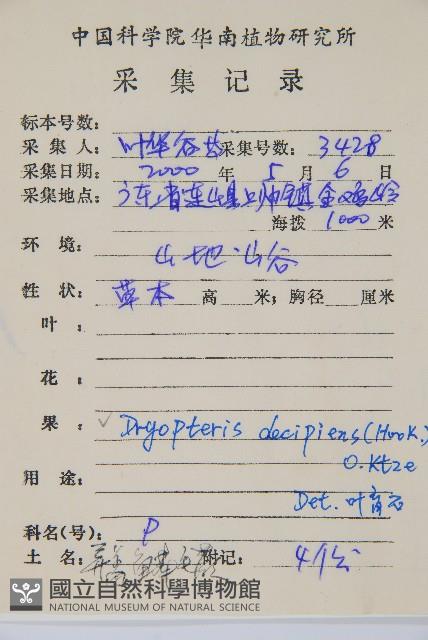 中国科学院华南植物研究所
采集记录
标本号数:
采集人: 叶华谷 采集号数: 3428
采集日期: 2000 年 5 月 6 日
采集地点: 广东省连山县上帅镇金鸡岭
海拨 1000 米
环境: 山地山谷
性状: 草本 高 米; 胸径 厘米
叶:
花:
果: Dryopteris decipiens (Hook.)
O. Ktze
用途: Det. 叶育石
科名(号): P
土名: 附记: 4份
國立自然科學博物館
NATIONAL MUSEUM OF NATURAL SCIENCE